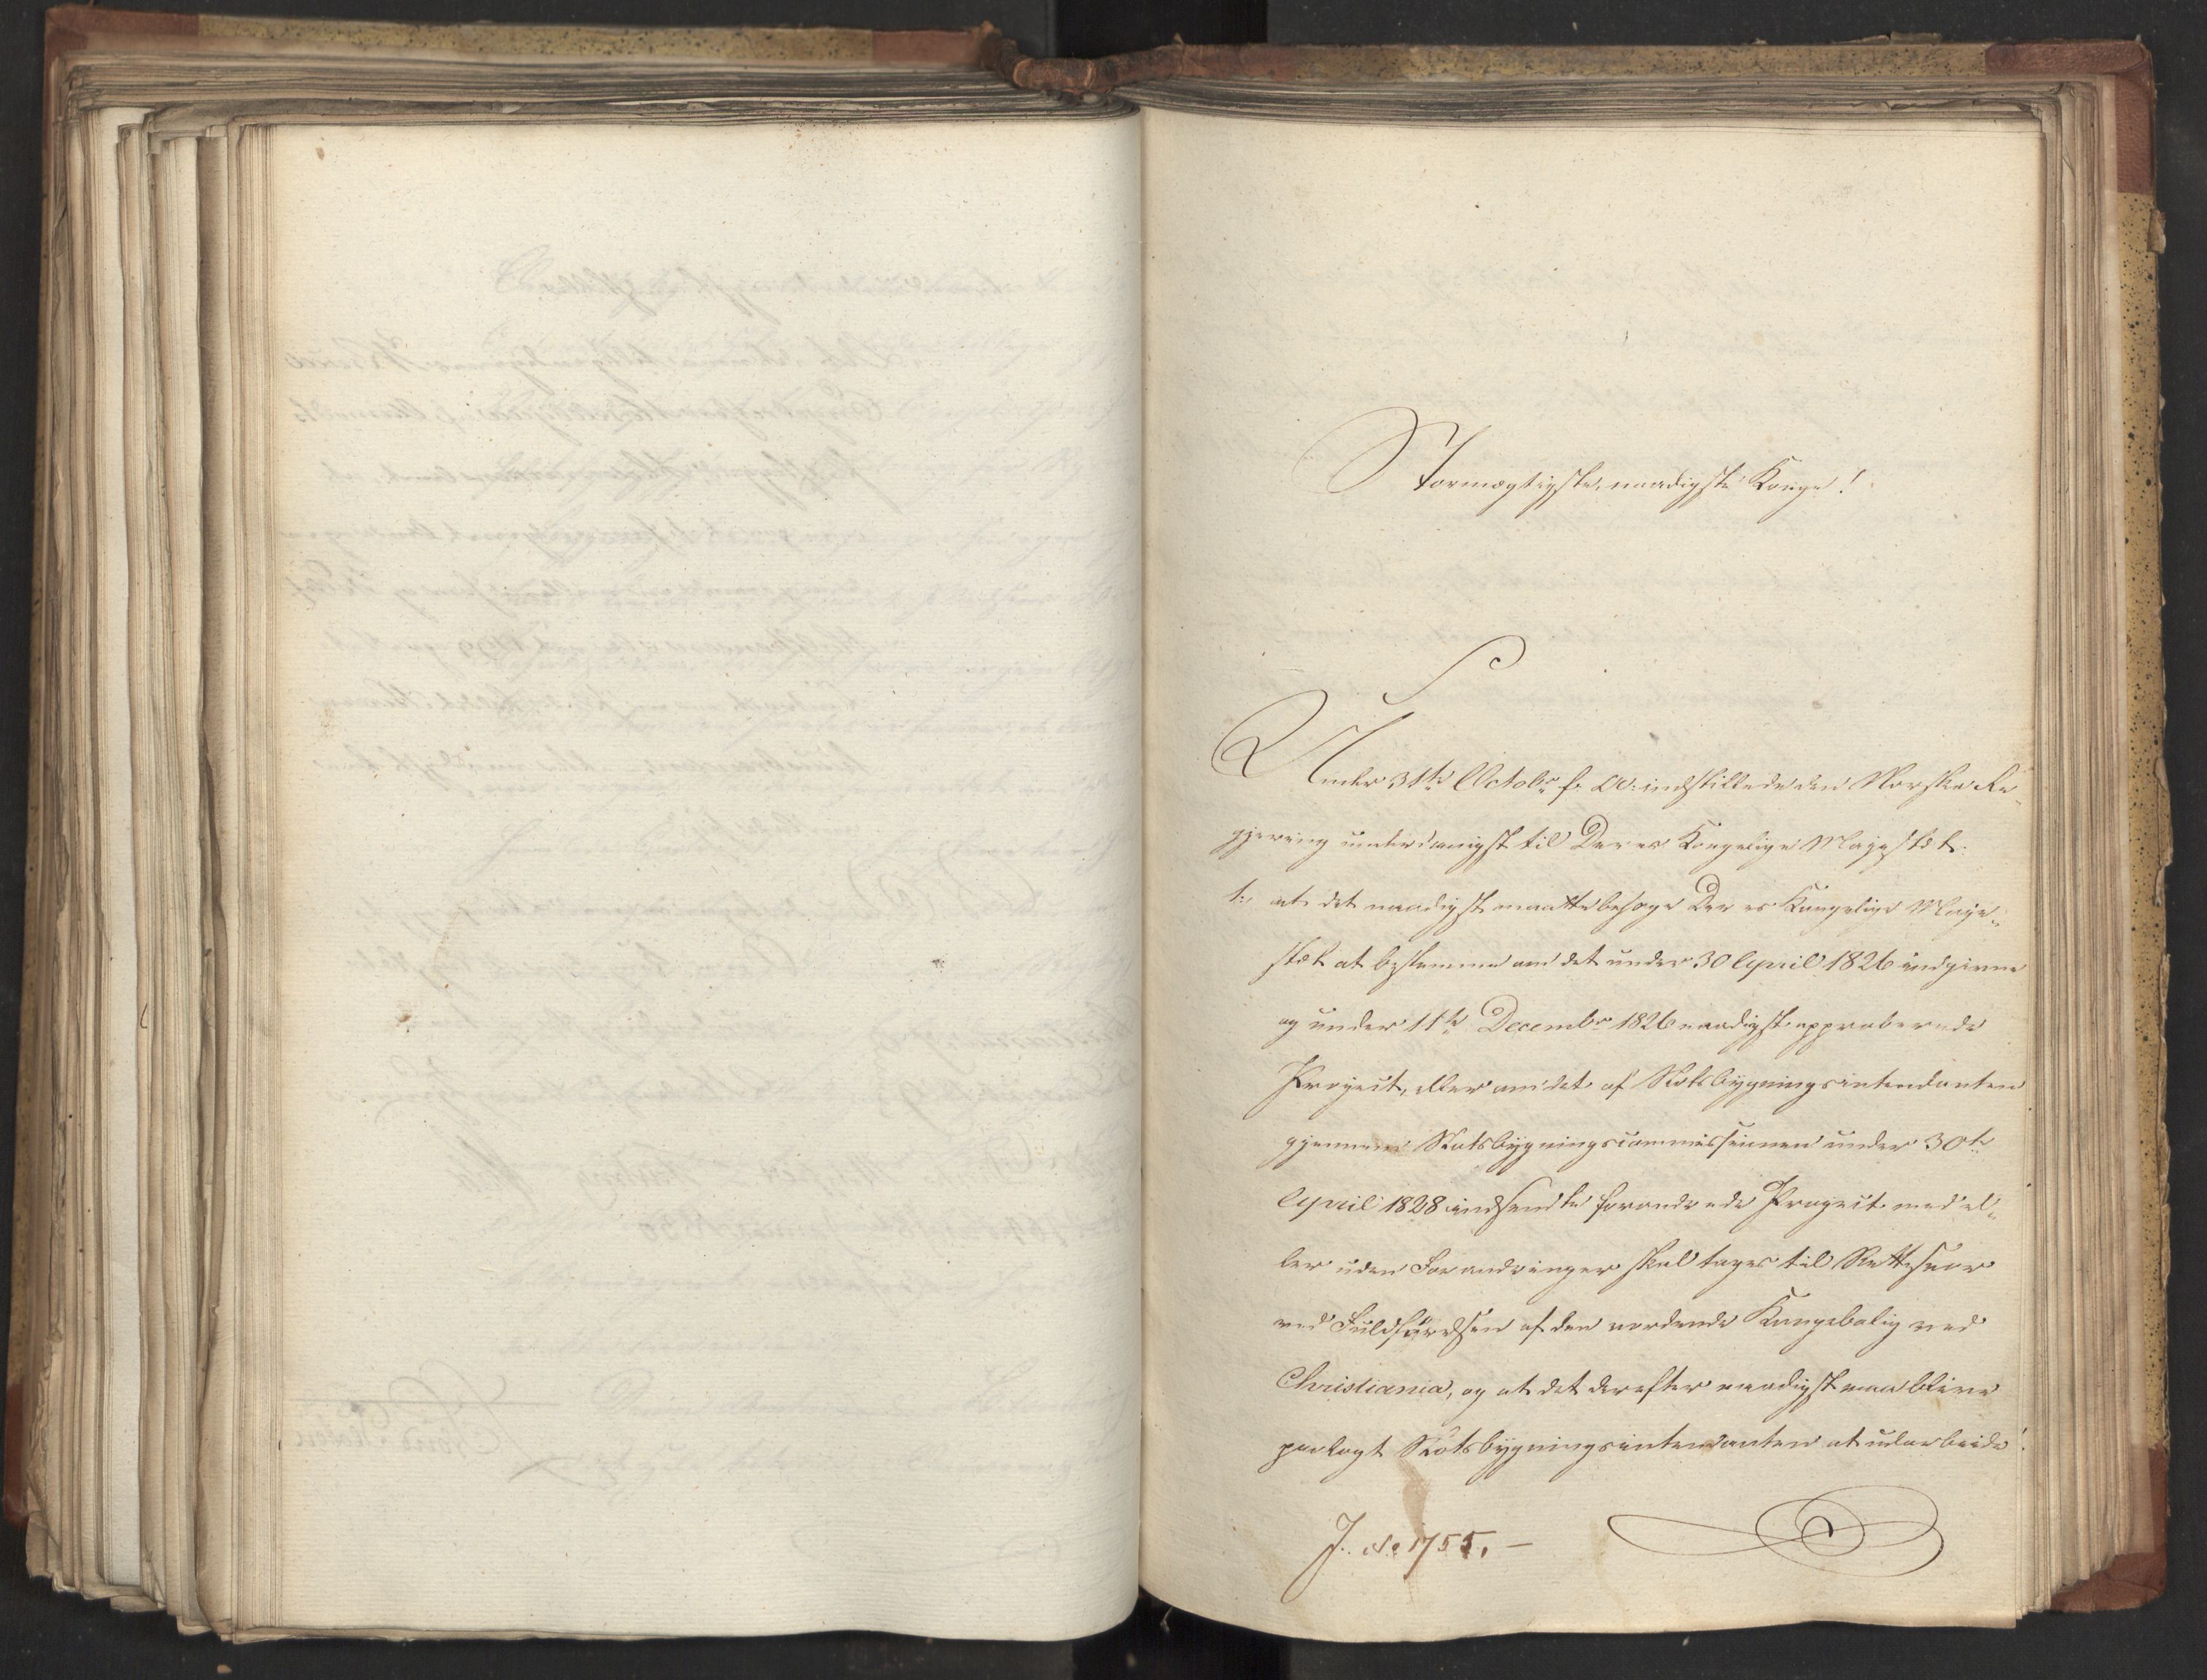 Stormægtigste, naadigste Konge!
Under 31te Octobr f. A. indstillede den Norske Re-
gjering underdanigst til Deres Kongelige Majestæt:
1., at det naadigst maatte behage Deres Kongelige Maje-
stæt at bestemme om det under 30 April 1826 indgivne
og under 11te Decembr 1826 naadigst approberede
Project, eller om det af Slotsbygningsintendanten
gjennem Slotsbygningscommissionen under 30te
April 1828 indsendte forandrede Project med el-
ler uden Forandringer skal tages til Rettesnor
ved Fuldførelsen af den vordende Kongebolig ved
Christiania, og at det derefter naadigst maa blive
paalagt Slotsbygningsintendanten at udarbeide
J. No 1755. —